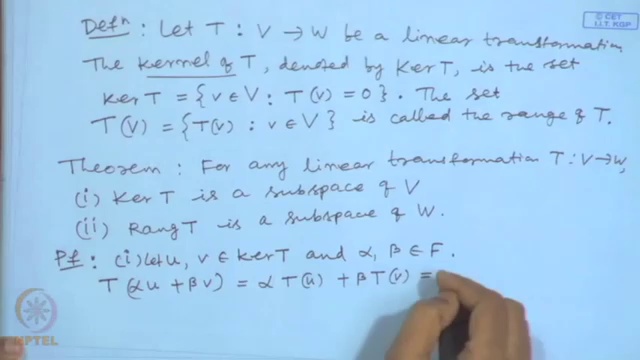 © CET
I.I.T. KGP
Defⁿ : Let T : V → W be a linear transformation
The kernel of T, denoted by Ker T, is the set
Ker T = {v ∈ V : T(v) = 0}. The set
T(V) = {T(v) : v ∈ V} is called the range of T.
Theorem : For any linear transformation T : V → W,
(i) Ker T is a subspace of V
(ii) Rang T is a subspace of W.
Pf : (i) Let u, v ∈ Ker T and α, β ∈ F.
T(αu + βv) = α T(u) + β T(v) =
NPTEL